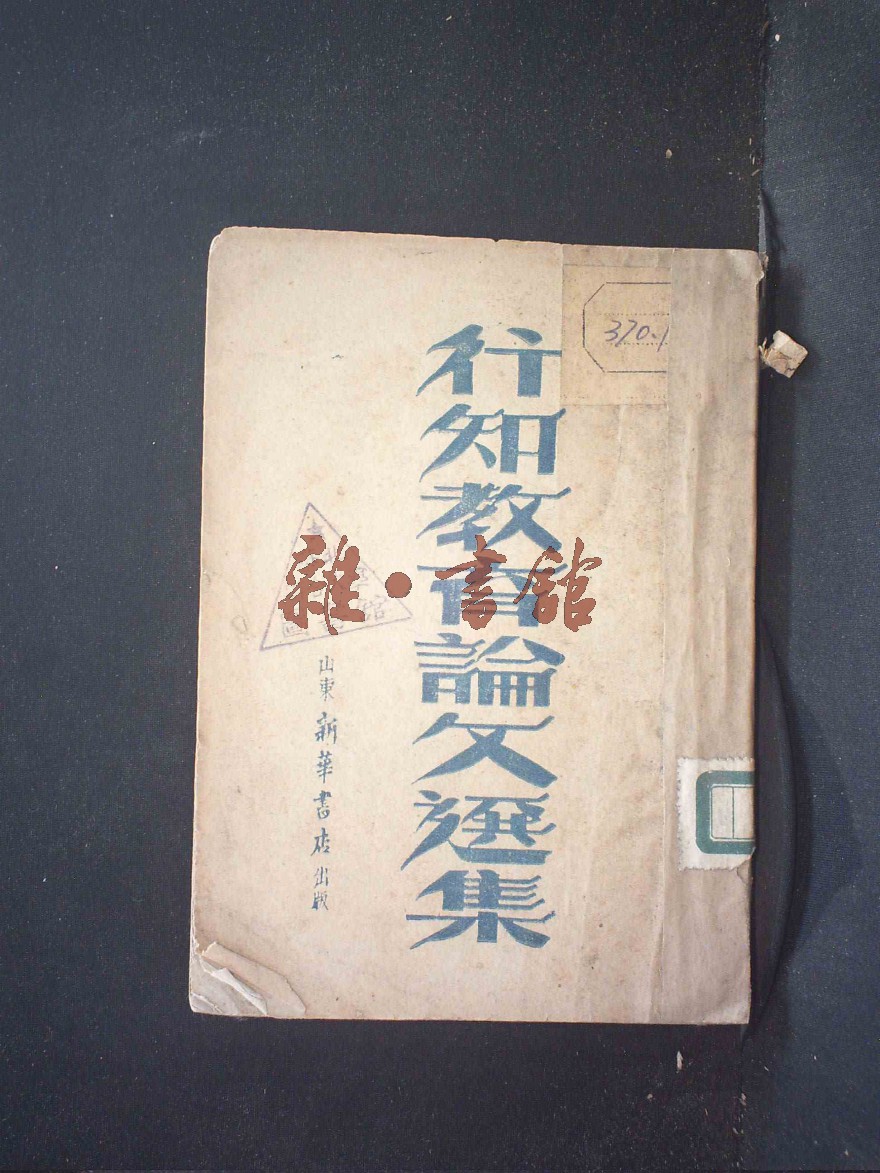 370.1
行知教育論文選集
雜·書館
山東新華書店出版